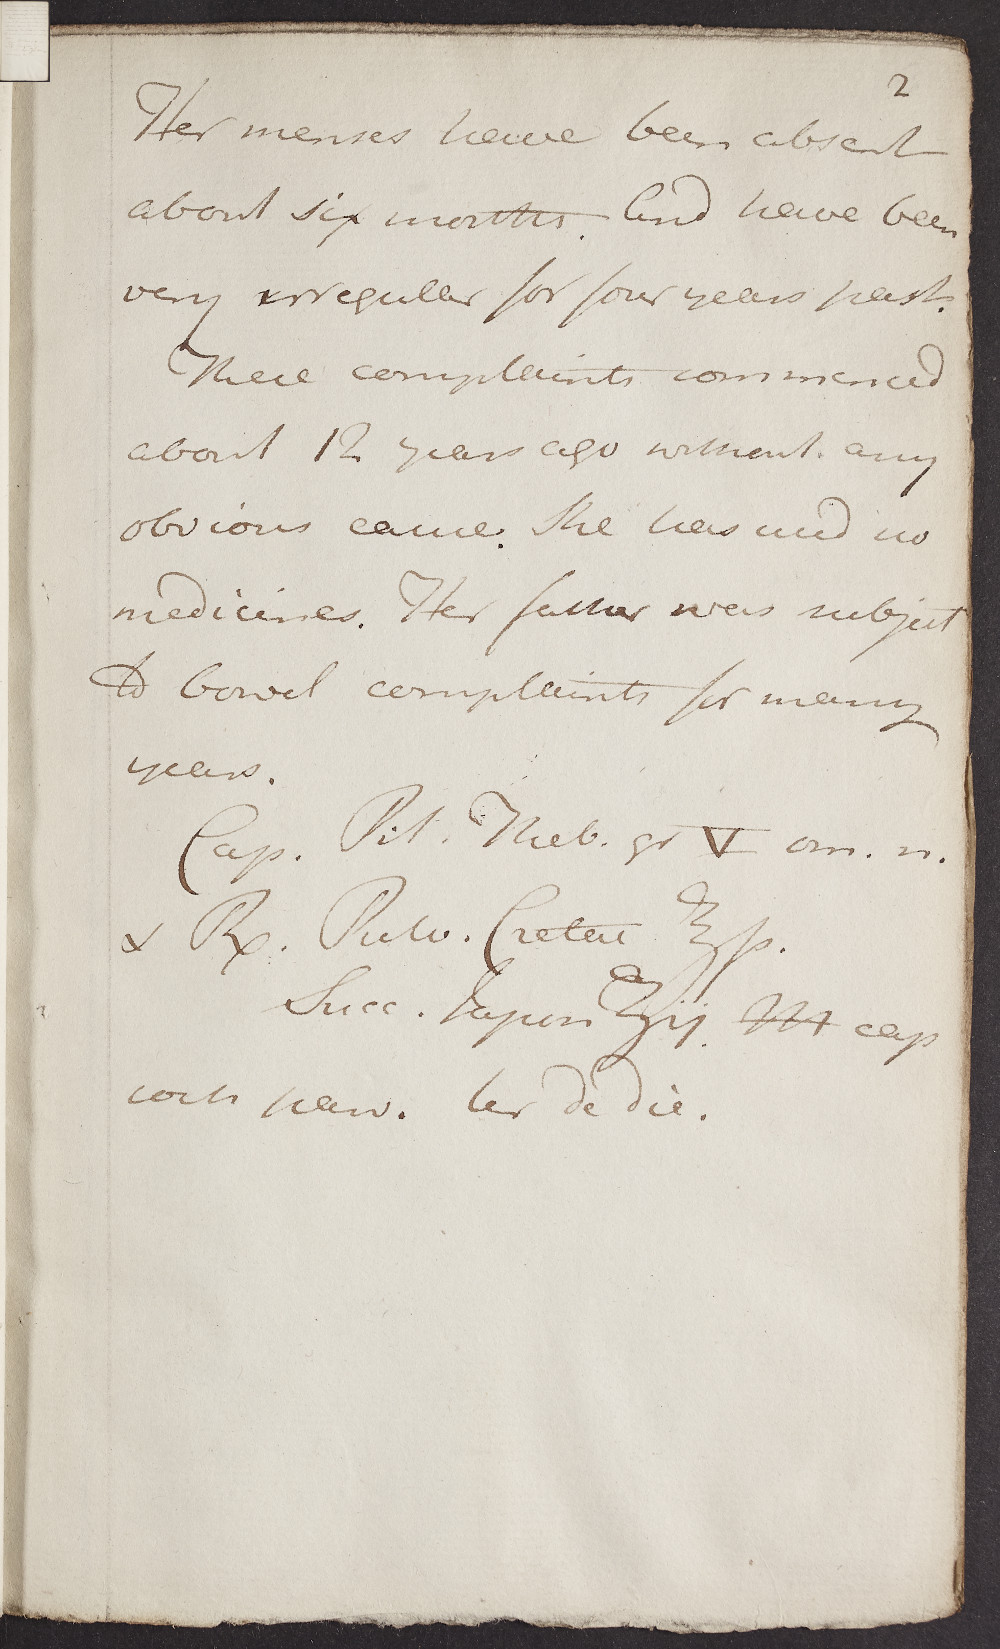 2
Her menses have been absent
about six months. And have been
very irregular for four years past.
These complaints commenced
about 12 years ago without any
obvious cause. She has used no
medicines. Her father was subject
to bowel complaints for many
years.
Cap. Pil. Theb. gr V om. n.
& ℞. Pulv. Cretae ℥ſs.
Succ. Japon ʒij. M cap
coch parv. ter de die.